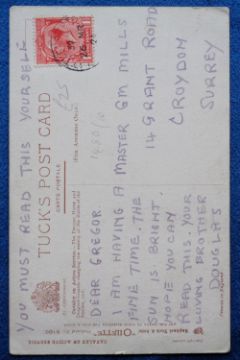 YOU MUST READ THIS YOURSELF
TUCK'S POST CARD
CARTE POSTALE
(FOR ADDRESS ONLY)
DEAR GREGOR.
I AM HAVING A
FINE TIME. THE
SUN IS BRIGHT.
HOPE YOU CAN
READ THIS. YOUR
LOVING BROTHER
DOUGLAS
MASTER GM MILLS
14 GRANT ROAD
CROYDON
SURREY
"OILETTE"
CAVALRY ON ACTIVE SERVICE